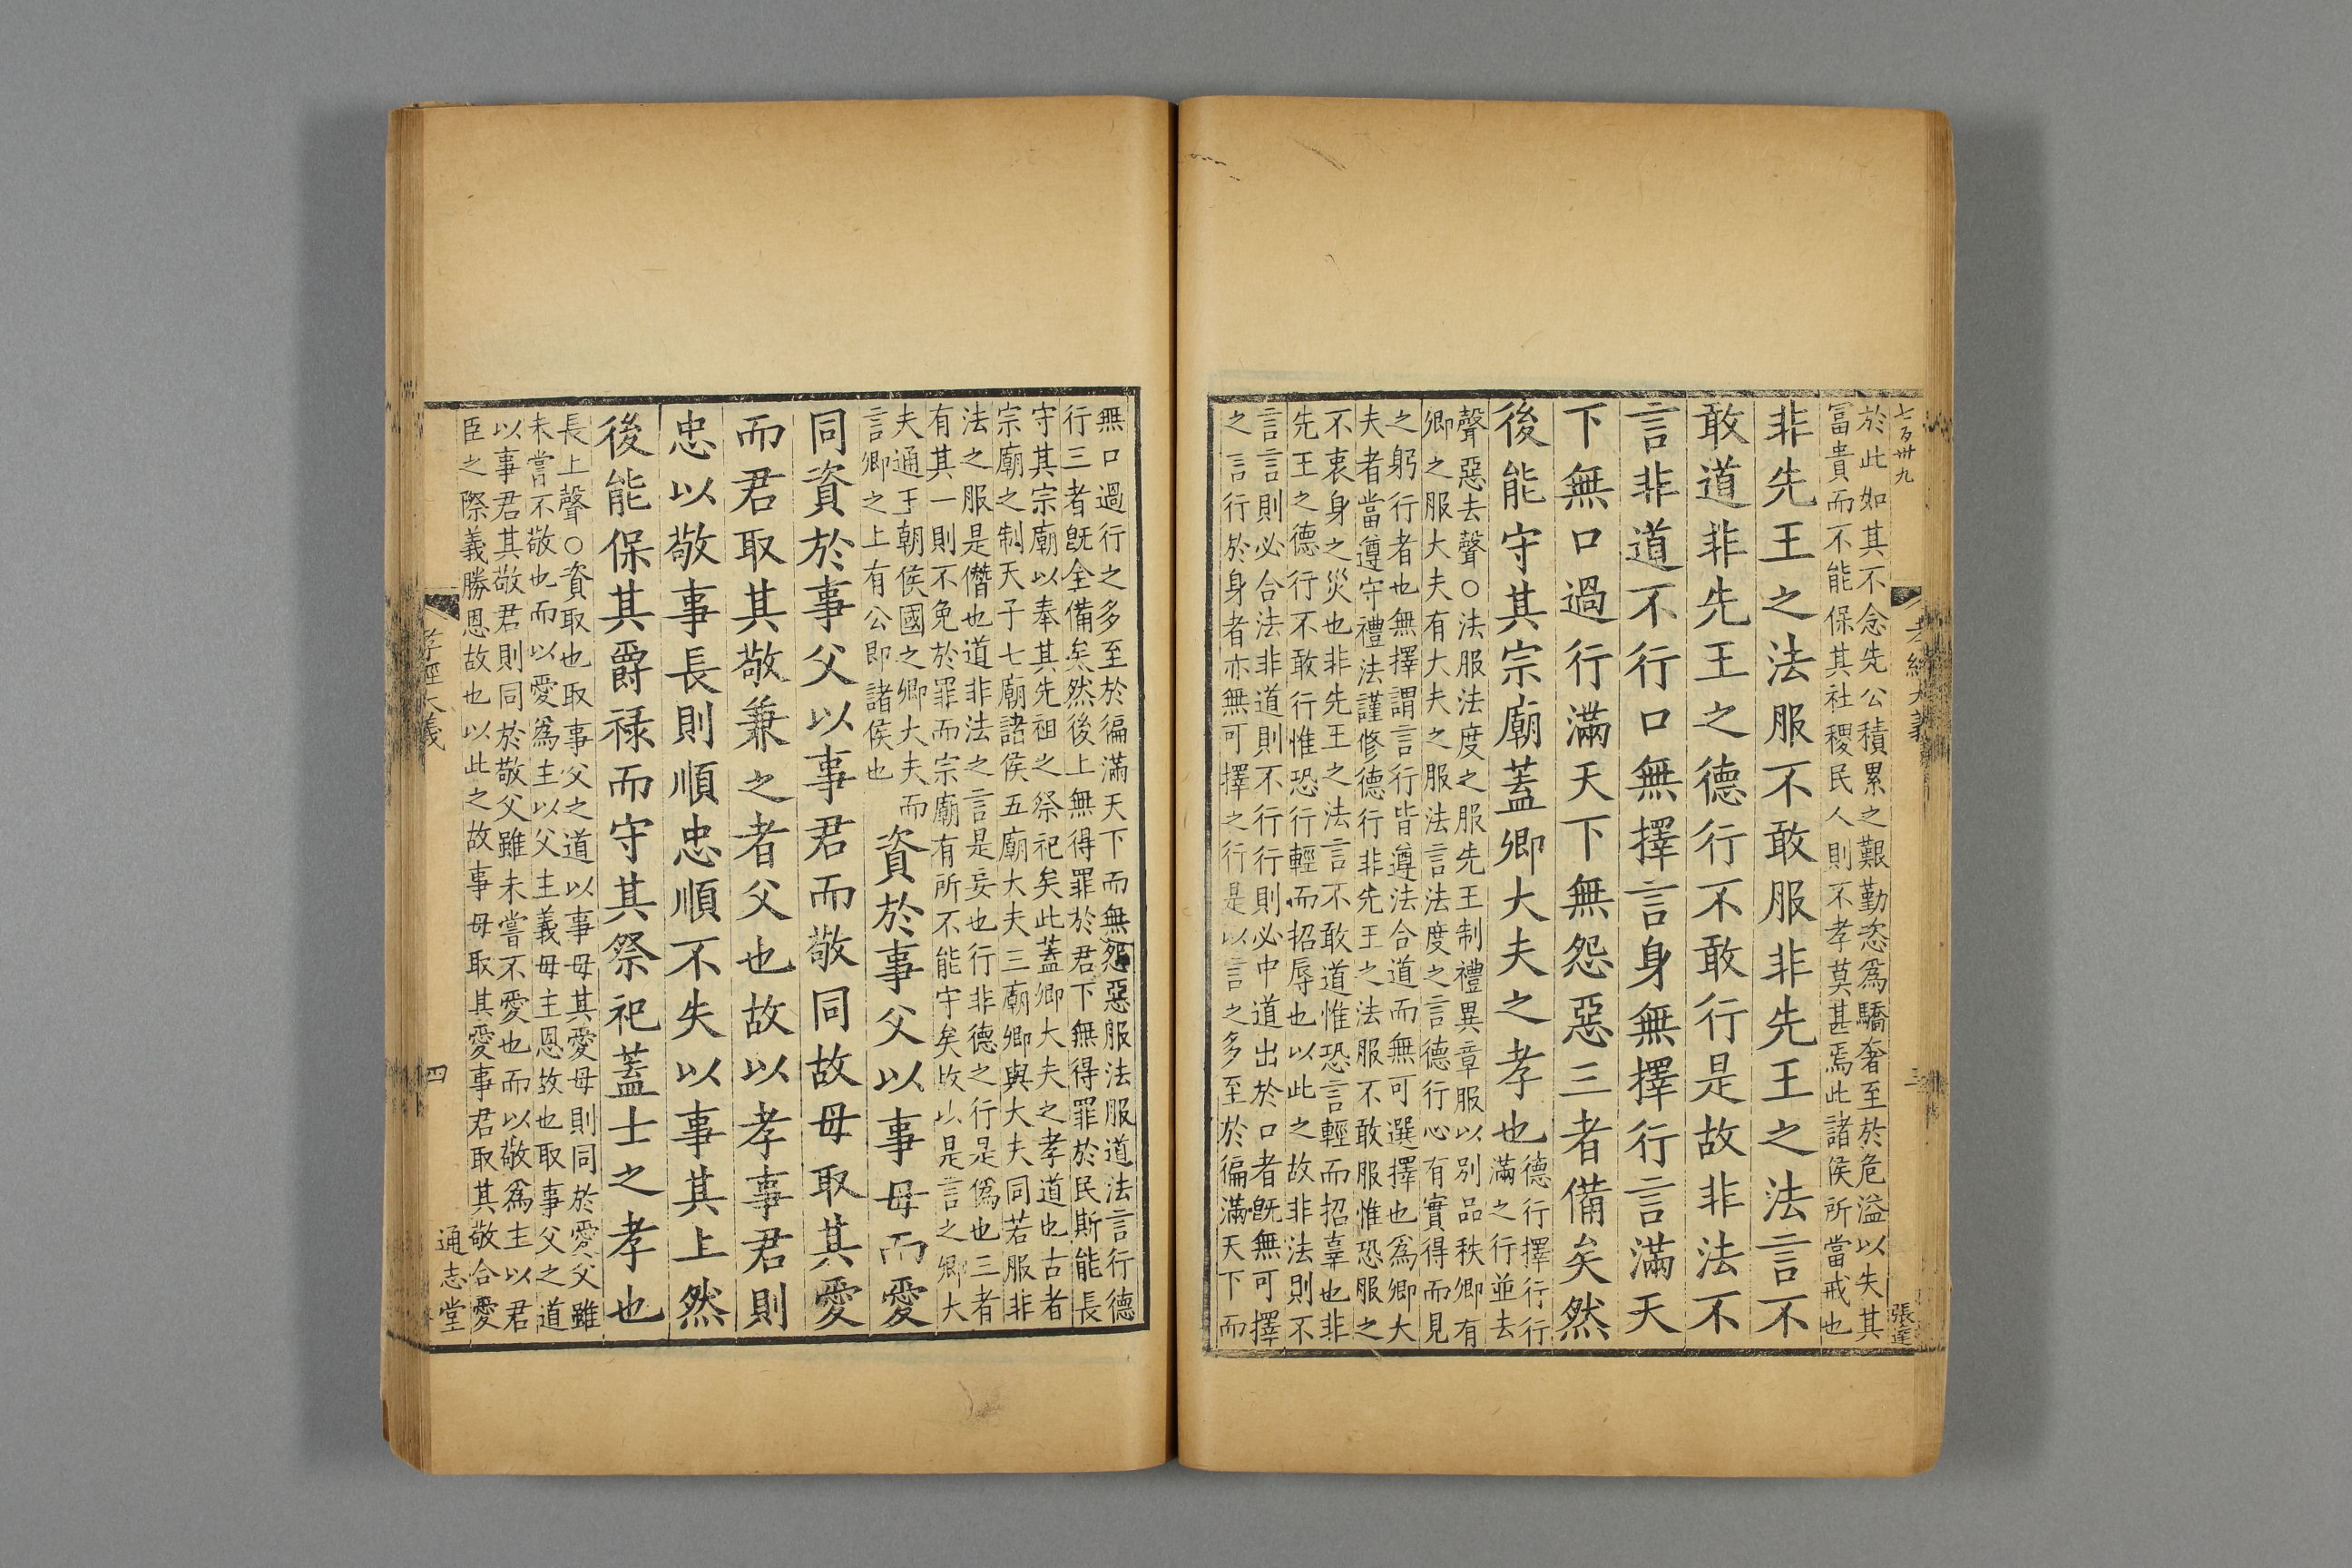 七百卅九
於此如其不念先公積累之艱勤恣爲驕奢至於危溢以失其
富貴而不能保其社稷民人則不孝莫甚焉此諸侯所當戒也
非先王之法服不敢服非先王之法言不
敢道非先王之德行不敢行是故非法不
言非道不行口無擇言身無擇行言滿天
下無口過行滿天下無怨惡三者備矣然
後能守其宗廟蓋卿大夫之孝也
德行擇行行
滿之行並去
聲惡去聲○法服法度之服先王制禮異章服以別品秩卿有
卿之服大夫有大夫之服法言法度之言德行心有實得而見
之躬行者也無擇謂言行皆遵法合道而無可選擇也爲卿大
夫者當遵守禮法謹修德行非先王之法服不敢服惟恐服之
不衷身之災也非先王之法言不敢道惟恐言輕而招辜也非
先王之德行不敢行惟恐行輕而招辱也以此之故非法則不
言言則必合法非道則不行行則必中道出於口者旣無可擇
之言行於身者亦無可擇之行是以言之多至於徧滿天下而
孝經大義
三
張達
無口過行之多至於徧滿天下而無怨惡服法服道法言行德
行三者旣全備矣然後上無得罪於君下無得罪於民斯能長
守其宗廟以奉其先祖之祭祀矣此蓋卿大夫之孝道也古者
宗廟之制天子七廟諸侯五廟大夫三廟卿與大夫同若服非
法之服是僭也道非法之言是妄也行非德之行是僞也三者
有其一則不免於罪而宗廟有所不能守矣故以是言之卿大
夫通王朝侯國之卿大夫而
言卿之上有公即諸侯也
資於事父以事母而愛
同資於事父以事君而敬同故母取其愛
而君取其敬兼之者父也故以孝事君則
忠以敬事長則順忠順不失以事其上然
後能保其爵祿而守其祭祀蓋士之孝也
長上聲○資取也取事父之道以事母其愛母則同於愛父雖
未嘗不敬也而以愛爲主以父主義母主恩故也取事父之道
以事君其敬君則同於敬父雖未嘗不愛也而以敬爲主以君
臣之際義勝恩故也以此之故事母取其愛事君取其敬合愛
孝經大義
四
通志堂